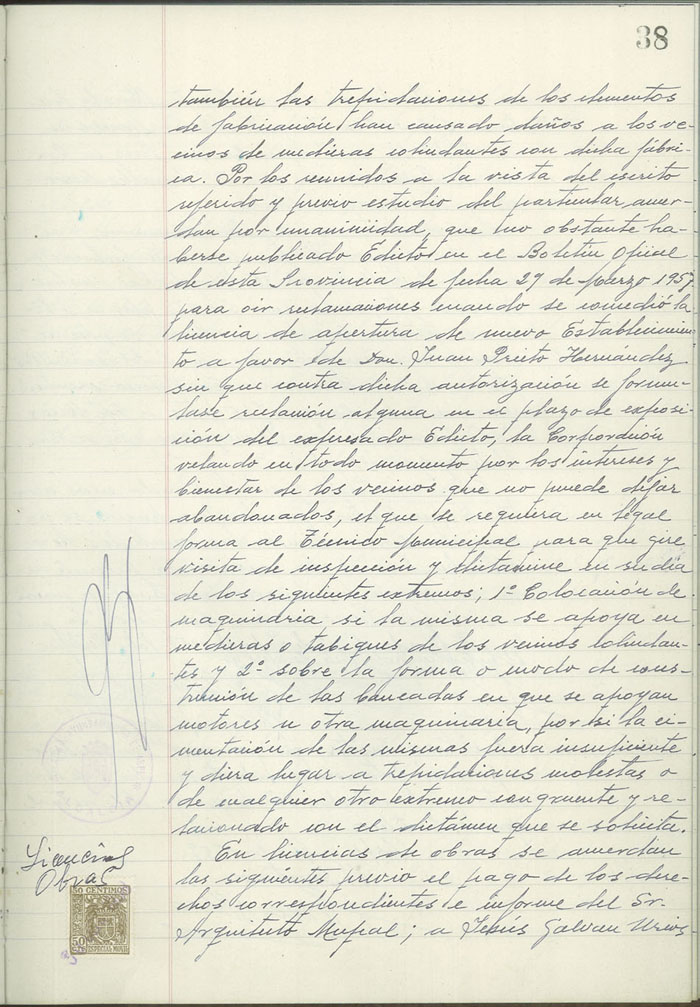 38
también las trepidaciones de los elementos
de fabricación han causado daños a los ve-
cinos de medieras colindantes con dicha fábri-
ca. Por los reunidos a la vista del escrito
referido y previo estudio del particular, acuer-
dan por unanimidad, que no obstante ha-
berse publicado Edicto en el Boletín Oficial
de esta Provincia de fecha 27 de Marzo 1957
para oir reclamaciones cuando se concedió la
licencia de apertura de nuevo Establecimien-
to a favor de Don Juan Prieto Hernández
sin que contra dicha autorización se formu-
lase reclamación alguna en el plazo de exposi-
ción del expresado Edicto, la Corporación
velando en todo momento por los intereses y
bienestar de los vecinos que no puede dejar
abandonados, el que se requiera en legal
forma al Técnico Municipal para que gire
visita de inspección y dictamine en su dia
de los siguientes extremos; 1º Colocación de
maquinaria, si la misma se apoya en
medieras o tabiques de los vecinos colindan-
tes y 2º sobre la forma o modo de cons-
trucción de las bancadas en que se apoyan
motores u otra maquinaria, por si la ci-
mentación de las mismas fuera insuficiente
y diera lugar a trepidaciones molestas o
de cualquier otro extremo congruente y re-
lacionado con el dictámen que se solicita.
Licencias
Obras
En licencias de obras se acuerdan
las siguientes previo el pago de los dere-
chos correspondientes e informe del Sr.
Arquitecto Mupal; a Jesús Galvan Urios
50 CENTIMOS
50
ESPECIAL MOVIL